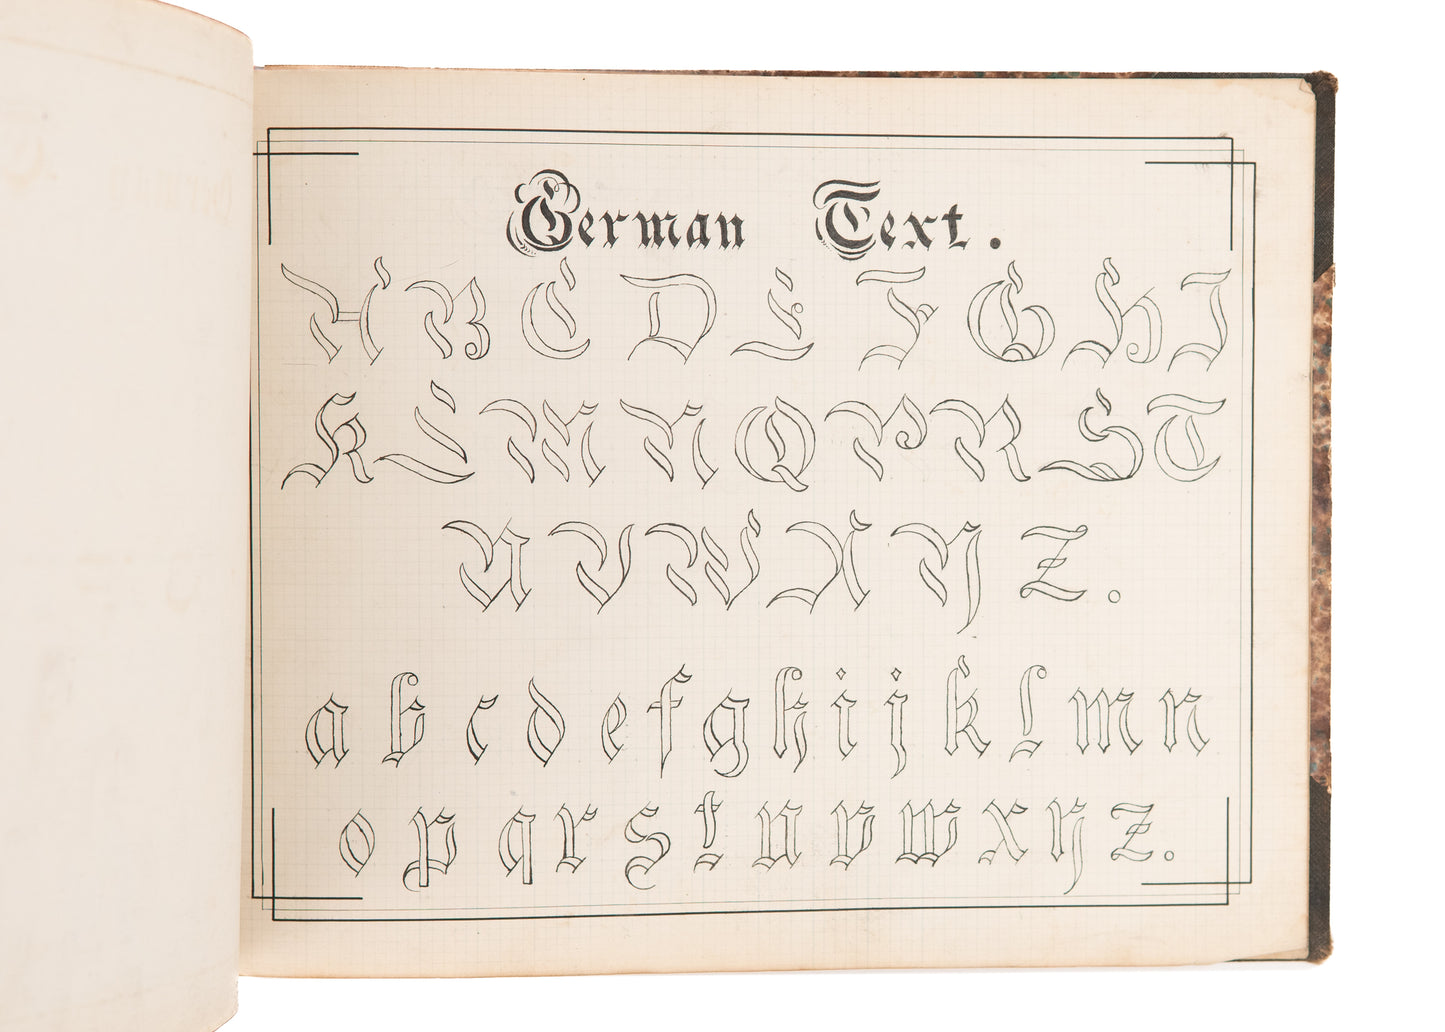 German Text.
A B C D E F G H I
K L M N Q P R S T
U V W X Y Z.
a b c d e f g h i j k l m n
o p q r s t u v w x y z.